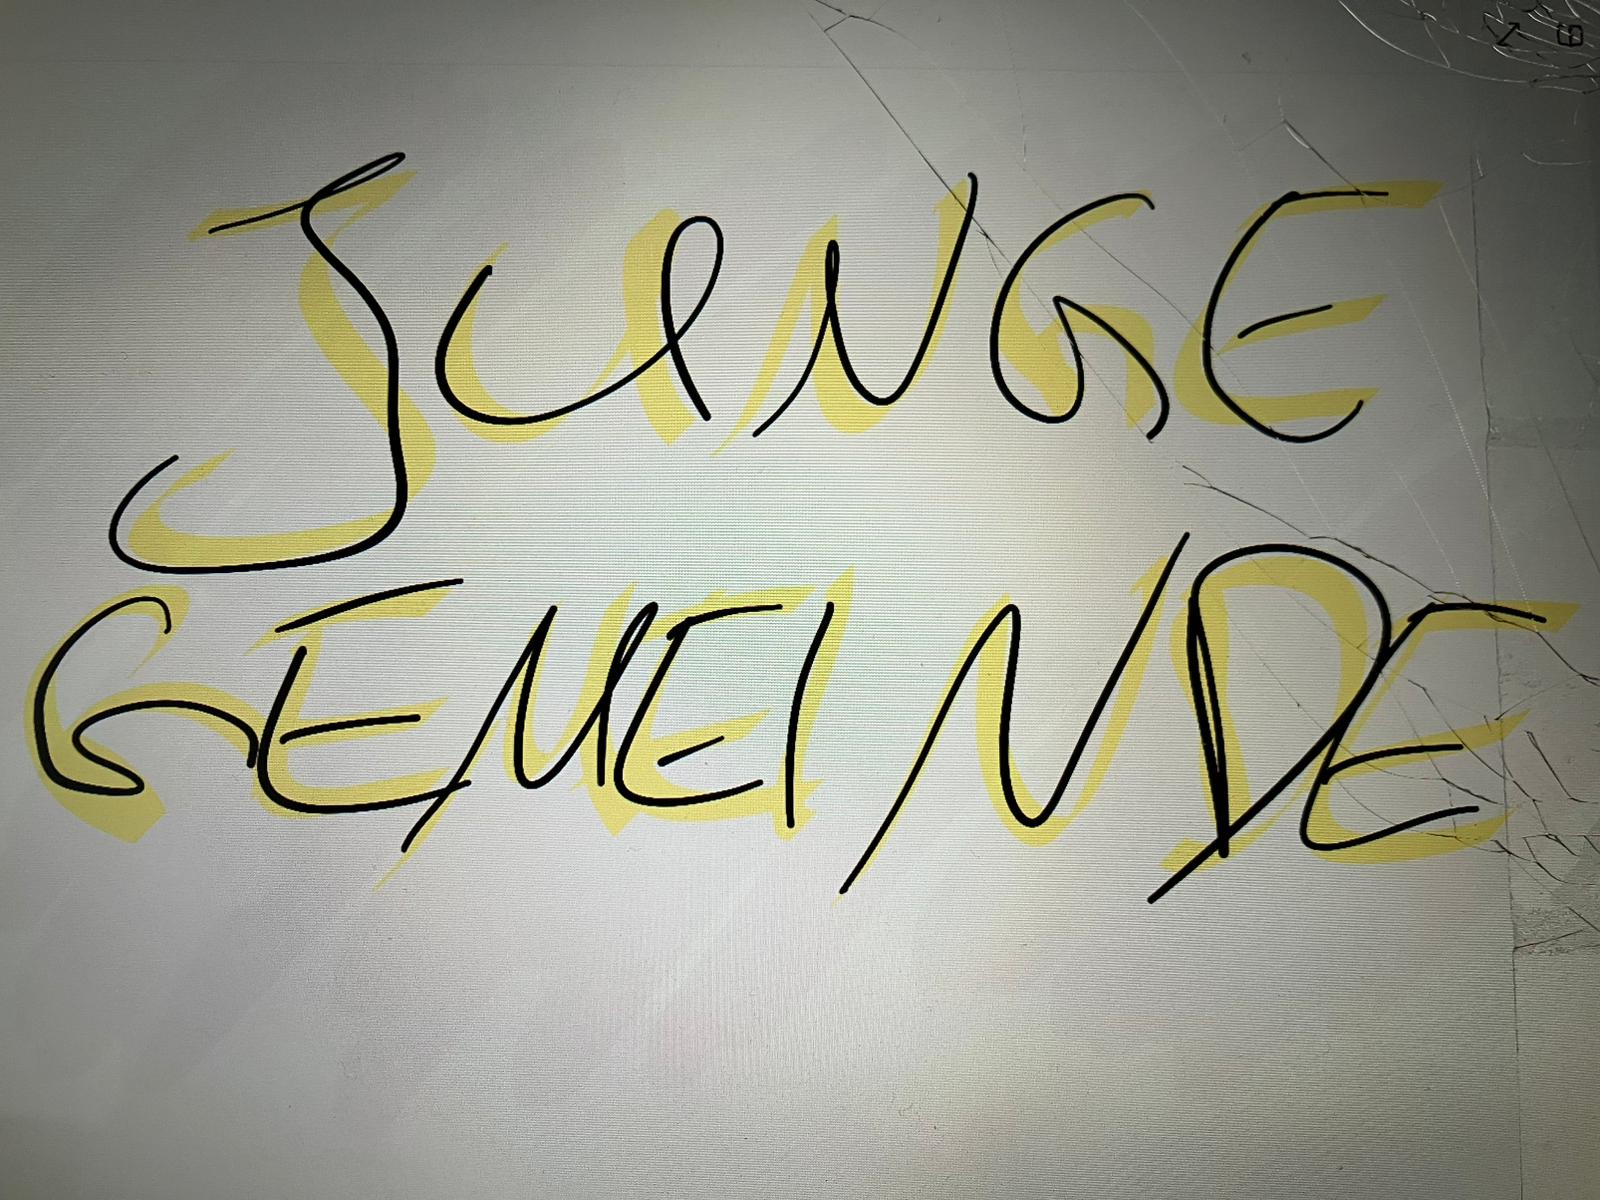 JUNGE
GEMEINDE